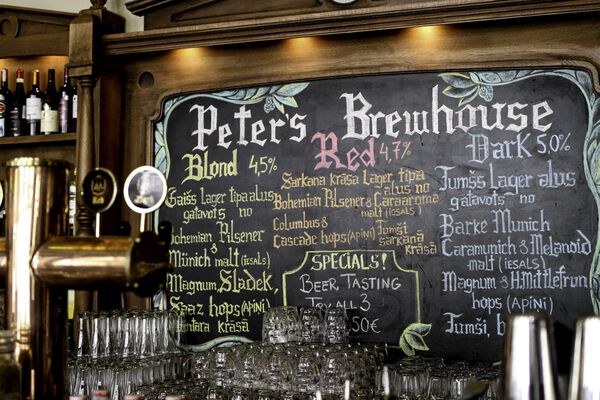 Peter's Brewhouse
Blond 4,5%
Gaišs Lager tipa alus
gatavots no
Bohemian Pilsener
&
Münich malt (iesals)
Magnum, Sladek,
Saaz hops (apiņi)
krāsā
Red 4,7%
Sarkana krāsa Lager tipa
alus no
Bohemian Pilsener & Cararaoma
malt (iesals)
Columbus &
Cascade hops (apiņi) Tumši
sarkanā
krāsā
SPECIALS!
BEER, TASTING
TRY ALL 3
50€
Dark 5,0%
Tumšs Lager alus
gatavots no
Barke Munich
Caramunich & Melanoid
malt (iesals)
Magnum & H.Mittlefrun
hops (apiņi)
Tumši,